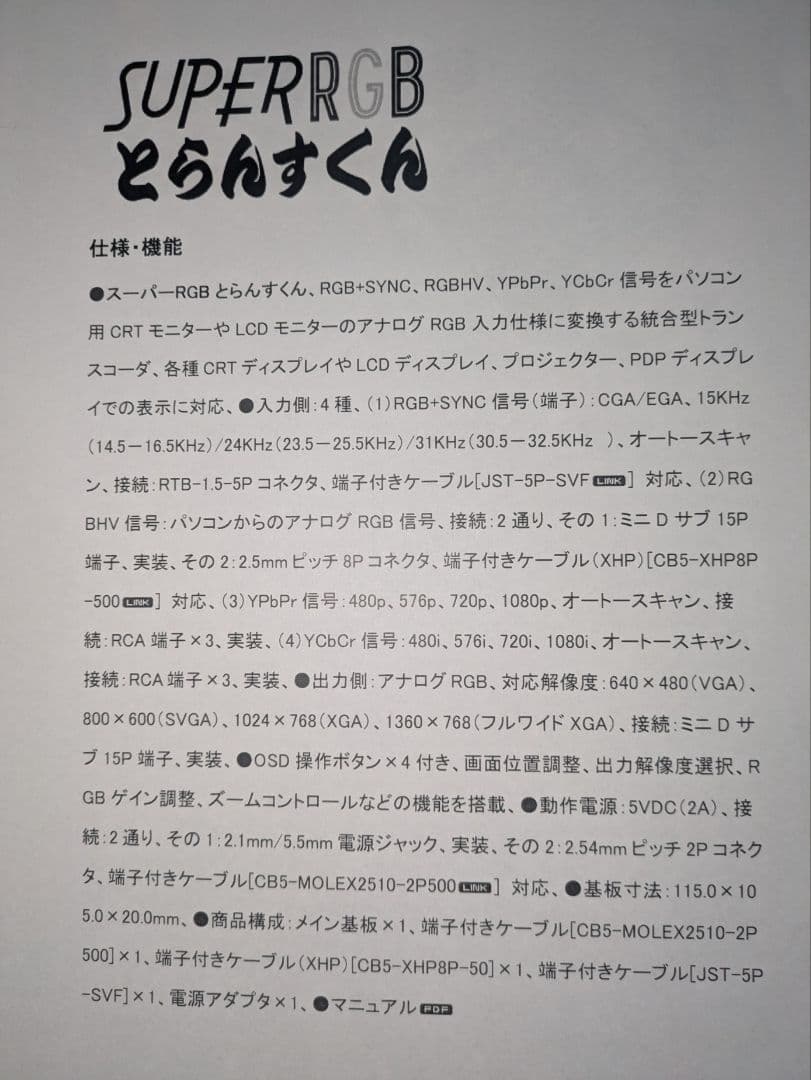 SUPER RGB
とらんすくん
仕様・機能
●スーパーRGBとらんすくん、RGB+SYNC、RGBHV、YPbPr、YCbCr信号をパソコン
用CRTモニターやLCDモニターのアナログRGB入力仕様に変換する統合型トラン
スコーダ、各種CRTディスプレイやLCDディスプレイ、プロジェクター、PDPディスプレ
イでの表示に対応、●入力側:4種、(1)RGB+SYNC信号(端子):CGA/EGA、15KHz
(14.5-16.5KHz)/24KHz(23.5-25.5KHz)/31KHz(30.5-32.5KHz )、オートースキャ
ン、接続:RTB-1.5-5Pコネクタ、端子付きケーブル[JST-5P-SVF LINK] 対応、(2)RG
BHV信号:パソコンからのアナログRGB信号、接続:2通り、その1:ミニDサブ15P
端子、実装、その2:2.5mmピッチ8Pコネクタ、端子付きケーブル(XHP)[CB5-XHP8P
-500 LINK] 対応、(3)YPbPr信号:480p、576p、720p、1080p、オートースキャン、接
続:RCA端子×3、実装、(4)YCbCr信号:480i、576i、720i、1080i、オートースキャン、
接続:RCA端子×3、実装、●出力側:アナログRGB、対応解像度:640×480(VGA)、
800×600(SVGA)、1024×768(XGA)、1360×768(フルワイドXGA)、接続:ミニDサ
ブ15P端子、実装、●OSD操作ボタン×4付き、画面位置調整、出力解像度選択、R
GBゲイン調整、ズームコントロールなどの機能を搭載、●動作電源:5VDC(2A)、接
続:2通り、その1:2.1mm/5.5mm電源ジャック、実装、その2:2.54mmピッチ2Pコネク
タ、端子付きケーブル[CB5-MOLEX2510-2P500 LINK] 対応、●基板寸法:115.0×10
5.0×20.0mm、●商品構成:メイン基板×1、端子付きケーブル[CB5-MOLEX2510-2P
500]×1、端子付きケーブル(XHP)[CB5-XHP8P-50]×1、端子付きケーブル[JST-5P
-SVF]×1、電源アダプタ×1、●マニュアル PDF